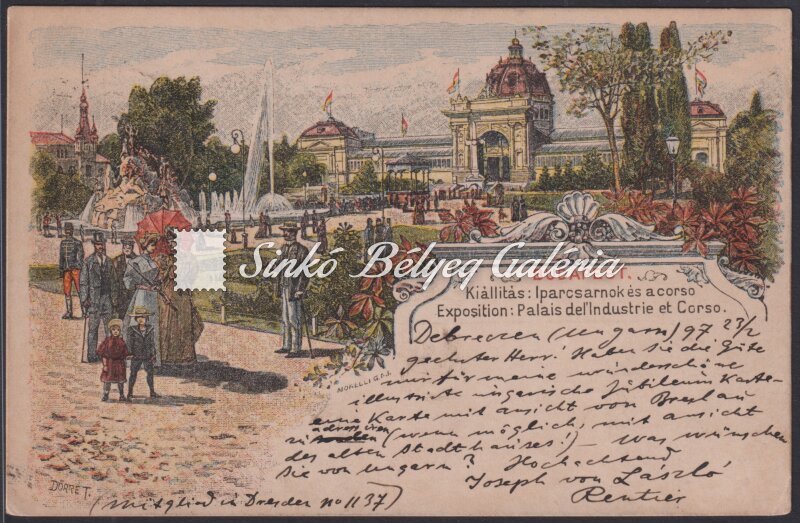 Sinkó Bélyeg Galéria
Kiállítás: Iparcsarnok és a corso
Exposition: Palais del'Industrie et Corso.
Debreczen (Ungarn) 97 23/2
geehrter Herr! Haben Sie die Güte
mir für meine wunderschöne
illustrirte ungarische Jubileum Karte
eine Karte mit ansicht von Breslau
adressiren
(wenn möglich, mit ansicht
des alten Stadthauses!) – Was wünschen
Sie von Ungarn? Hochachtend
Joseph von László
Rentier
MORELLI G.E.J.
DÖRRE T.
(Mitglied in Dresden no 1137)